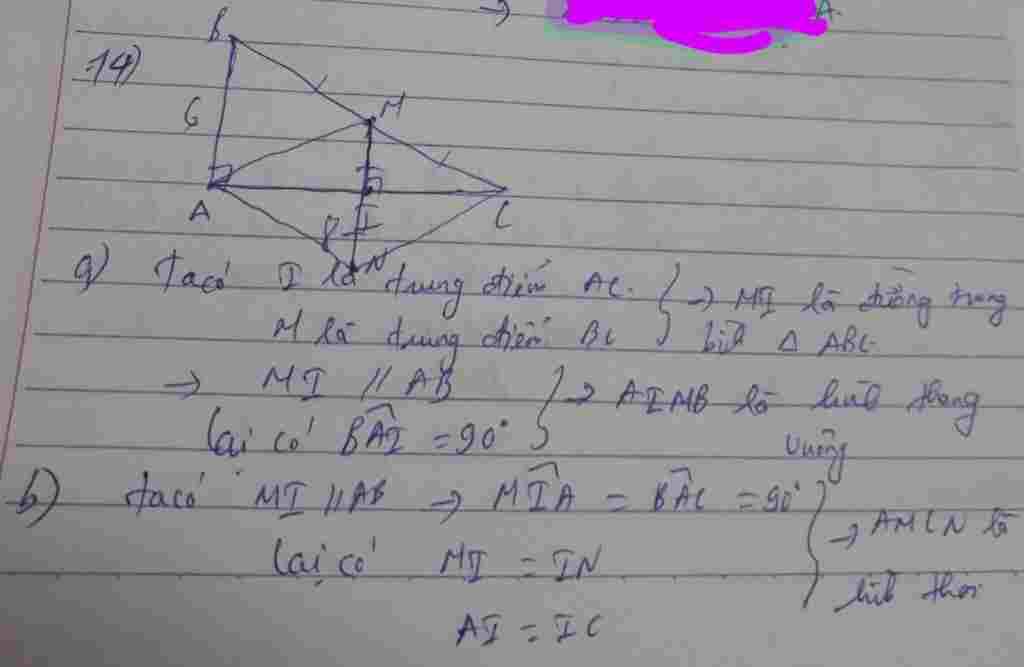 A
14)
B
M
6
A
I
C
N
a) ta có I là trung điểm AC. } → MI là đường trung
M là trung điểm BC bình △ ABC
→ MI // AB } → AIMB là hình thang
lại có BÂI = 90° vuông
b) ta có MI // AB → MÎA = BÂC = 90° } → AMCN là
lại có MI = IN hình thoi
AI = IC